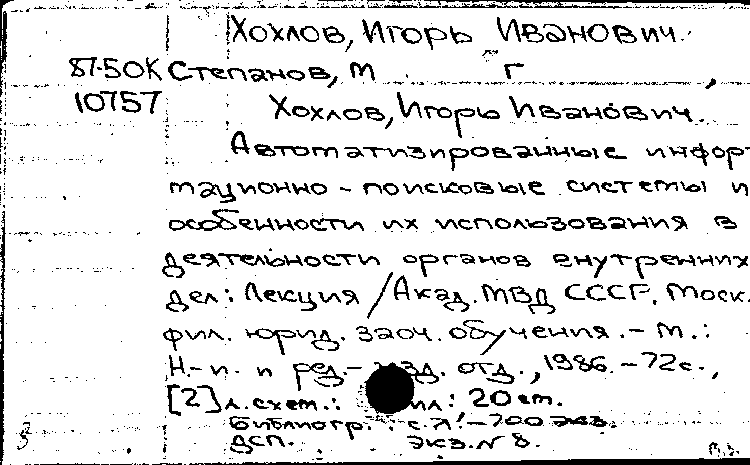 Хохлов, Игорь Иванович.
87-50К Степанов, М Г ,
10757 Хохлов, Игорь Иванович.
Автоматизированные инфор-
тационно-поисковые системы и
особенности их использования в
деятельности органов внутренних
дел: Лекция / Акад. МВД СССР, Моск.
фил. юрид. заоч. обучения. - М.:
Н.-и. и ред.- изд. отд., 1986. - 72с.,
[2] л. схем.: ил: 20 см.
Библиогр.: с. - 700 экз.
ДСП. Экз. N 8.